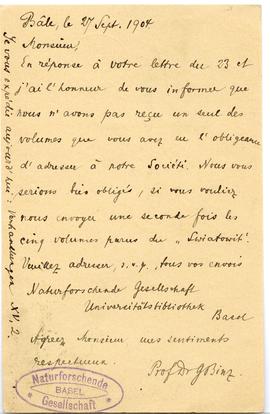 Bâle, le 27 Sept. 1904
Monsieur,
En réponse à votre lettre du 23 et
j'ai l'honneur de vous informer que
nous n'avons pas reçu un seul des
volumes que vous avez eu l'obligeance
d'adresser à notre Société. Nous vous
serions bien obligés, si vous vouliez
nous envoyer une seconde fois les
cinq volumes parus du „Swiatowit".
Veuillez adresser, s.v.p., tous vos envois
Naturforschende Gesellschaft
Universitätsbibliothek
Basel
Agréez Monsieur mes sentiments
respectueux
Prof Dr G Binz
Naturforschende
BASEL
Gesellschaft
Je vous expédie aujourd'hui: Verhandlungen XV, 2.